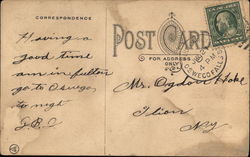 CORRESPONDENCE
Having a
good time
am in Fulton
go to Oswego
to night
POST CARD
FOR ADDRESS
ONLY
OSWEGO FALLS
4 PM
Mr. Ogden
Ilion
NY